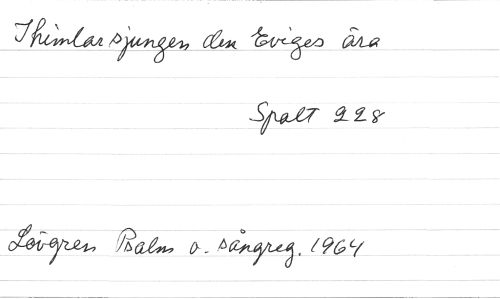 I himlar sjungen den Eviges ära
Spalt 228
Lövgren Psalm o. sångreg. 1964